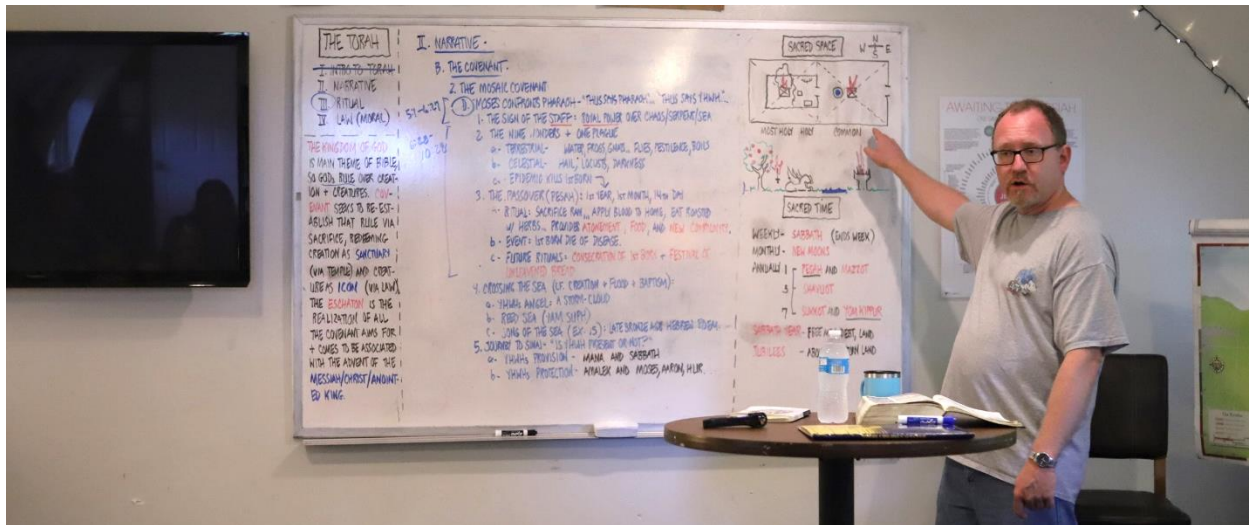 THE TORAH
I. INTRO TO TORAH
II. NARRATIVE
III. RITUAL
IV. LAW (MORAL)
THE KINGDOM OF GOD
IS MAIN THEME OF BIBLE,
SO GOD'S RULE OVER CREAT-
ION + CREATURES. COV-
ENANT SEEKS TO RE-EST-
ABLISH THAT RULE VIA
SACRIFICE, REDEEMING
CREATION AS SANCTUARY
(VIA TEMPLE) AND CREAT-
URE AS ICON (VIA LAW)
THE ESCHATON IS THE
REALIZATION OF ALL
THE COVENANT AIMS FOR
+ COMES TO BE ASSOCIATED
WITH THE ADVENT OF THE
MESSIAH/CHRIST/ANOINT-
ED KING.
II. NARRATIVE -
B. THE COVENANT-
2. THE MOSAIC COVENANT
MOSES CONFRONTS PHARAOH- "THUS SAYS PHARAOH"... "THUS SAYS YHWH"...
1. THE SIGN OF THE STAFF: ROYAL POWER OVER CHAOS/SERPENT/SEA
2. THE NINE WONDERS + ONE PLAGUE
a- TERRESTRIAL- WATER, FROGS, GNATS... FLIES, PESTILENCE, BOILS
b- CELESTIAL- HAIL, LOCUSTS, DARKNESS
c- EPIDEMIC KILLS 1st BORN
3. THE PASSOVER (PESAH): 1st YEAR, 1st MONTH, 14th DAY
- RITUAL: SACRIFICE RAM... APPLY BLOOD TO HOME, EAT ROASTED
W/ HERBS... PROVIDES ATONEMENT, FOOD, AND NEW COMMUNITY.
b- EVENT: 1st BORN DIE OF DISEASE.
c- FUTURE RITUALS: CONSECRATION OF 1st BORN + FESTIVAL OF
UNLEAVENED BREAD
4. CROSSING THE SEA (CF. CREATION + FLOOD + BAPTISM):
a- YHWH'S ANGEL: A STORM-CLOUD
b- REED SEA (YAM SUPH)
c- SONG OF THE SEA (EX. 15): LATE BRONZE AGE HEBREW POEM
5. JOURNEY TO SINAI- "IS YHWH PRESENT OR NOT?"
a- YHWH'S PROVISION - MANA AND SABBATH
b- YHWH'S PROTECTION - AMALEK AND MOSES, AARON, HUR.
SACRED SPACE
N
W E
S
MOST HOLY HOLY COMMON
SACRED TIME
WEEKLY- SABBATH (ENDS WEEK)
MONTHLY- NEW MOONS
ANNUALLY 1 PESAH AND MAZZOT
3 SHAVUOT
7 SUKKOT AND YOM KIPPUR
SABBATH YEAR- DEBT, LAND
JUBILEES - LAND
AWAITING